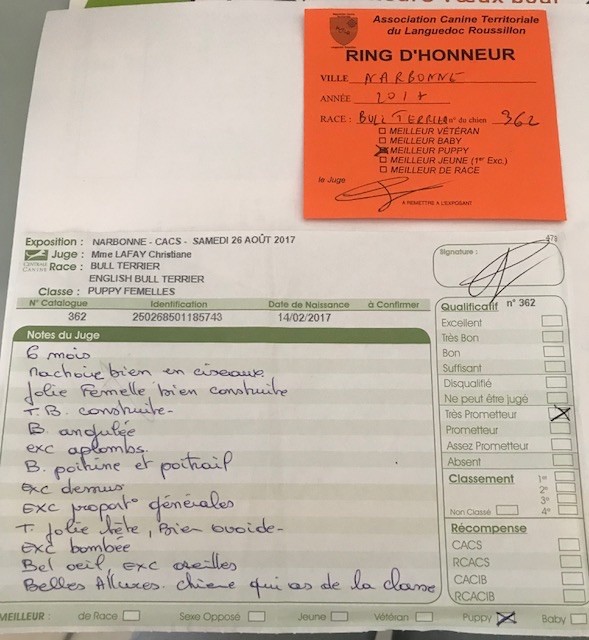 Association Canine Territoriale
du Languedoc Roussillon
RING D'HONNEUR
VILLE NARBONNE
ANNÉE 2017
RACE : BULL TERRIER n° du chien 362
MEILLEUR VÉTÉRAN
MEILLEUR BABY
MEILLEUR PUPPY
MEILLEUR JEUNE (1er Exc.)
MEILLEUR DE RACE
le Juge
A REMETTRE A L'EXPOSANT
Exposition : NARBONNE - CACS - SAMEDI 26 AOÛT 2017
Juge : Mme LAFAY Christiane
CENTRALE CANINE
Race : BULL TERRIER
ENGLISH BULL TERRIER
Classe : PUPPY FEMELLES
N° Catalogue Identification Date de Naissance à Confirmer
362 250268501185743 14/02/2017
Notes du Juge
6 mois
machoire bien en ciseaux
Jolie Femelle bien construite
T.B. construite-
B. angulée
exc aplombs.
B. poitrine et poitrail
exc dessus
EXC proport° générales
T. jolie tête, Bien ovoïde-
EXC bombée
Bel oeil, exc oreilles
Belles Allures. chienne qui as de la classe
Signature :
Qualificatif n° 362
Excellent
Très Bon
Bon
Suffisant
Disqualifié
Ne peut être jugé
Très Prometteur
Prometteur
Assez Prometteur
Absent
Classement 1er
2e
3e
Non Classé 4e
Récompense
CACS
RCACS
CACIB
RCACIB
MEILLEUR : de Race Sexe Opposé Jeune Vétéran Puppy Baby